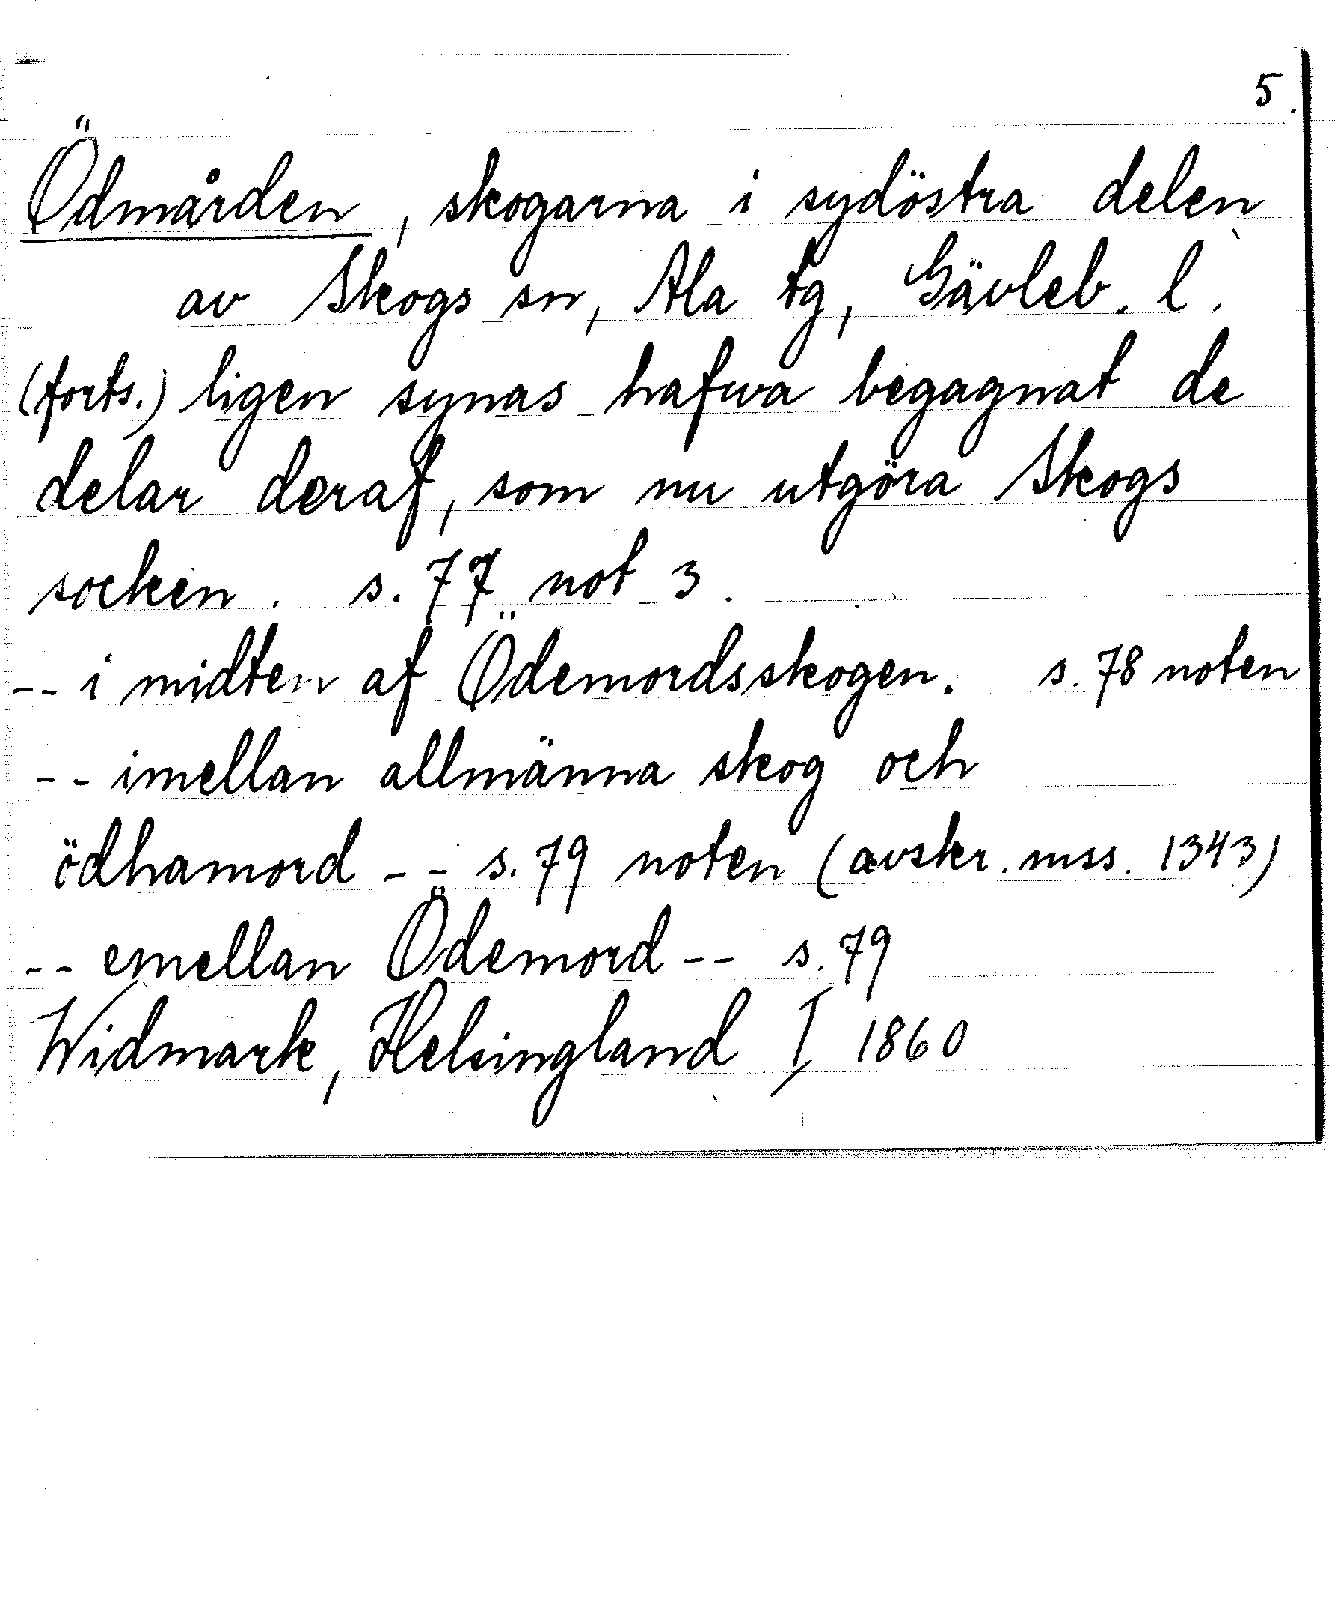 5.
Ödmården, skogarna i sydöstra delen
av Skogs sn, Ala tg, Gävleb. l.
(forts.) ligen synas hafwa begagnat de
delar deraf, som nu utgöra Skogs
socken. s. 77 not 3.
-- i midten af Ödemordsskogen. s. 78 noten
-- imellan allmänna skog och
ödhamord -- s. 79 noten (avskr. mss. 1343)
-- emellan Ödemord -- s. 79
Widmark, Helsingland I 1860